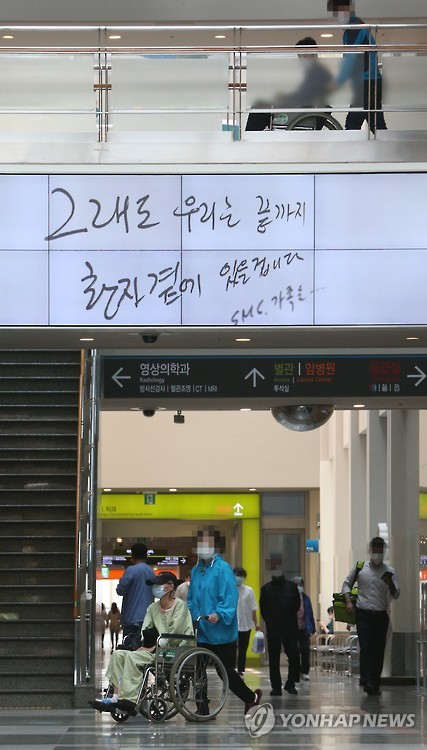 그래도 우리는 끝까지
환자곁에 있을겁니다
SMC 가족들...
영상의학과
Radiology
방사선검사 | 혈관조영 | CT | MRI
별관 | 암병원
Annex | Cancer Center
투석실
응급실
치과
YONHAP NEWS